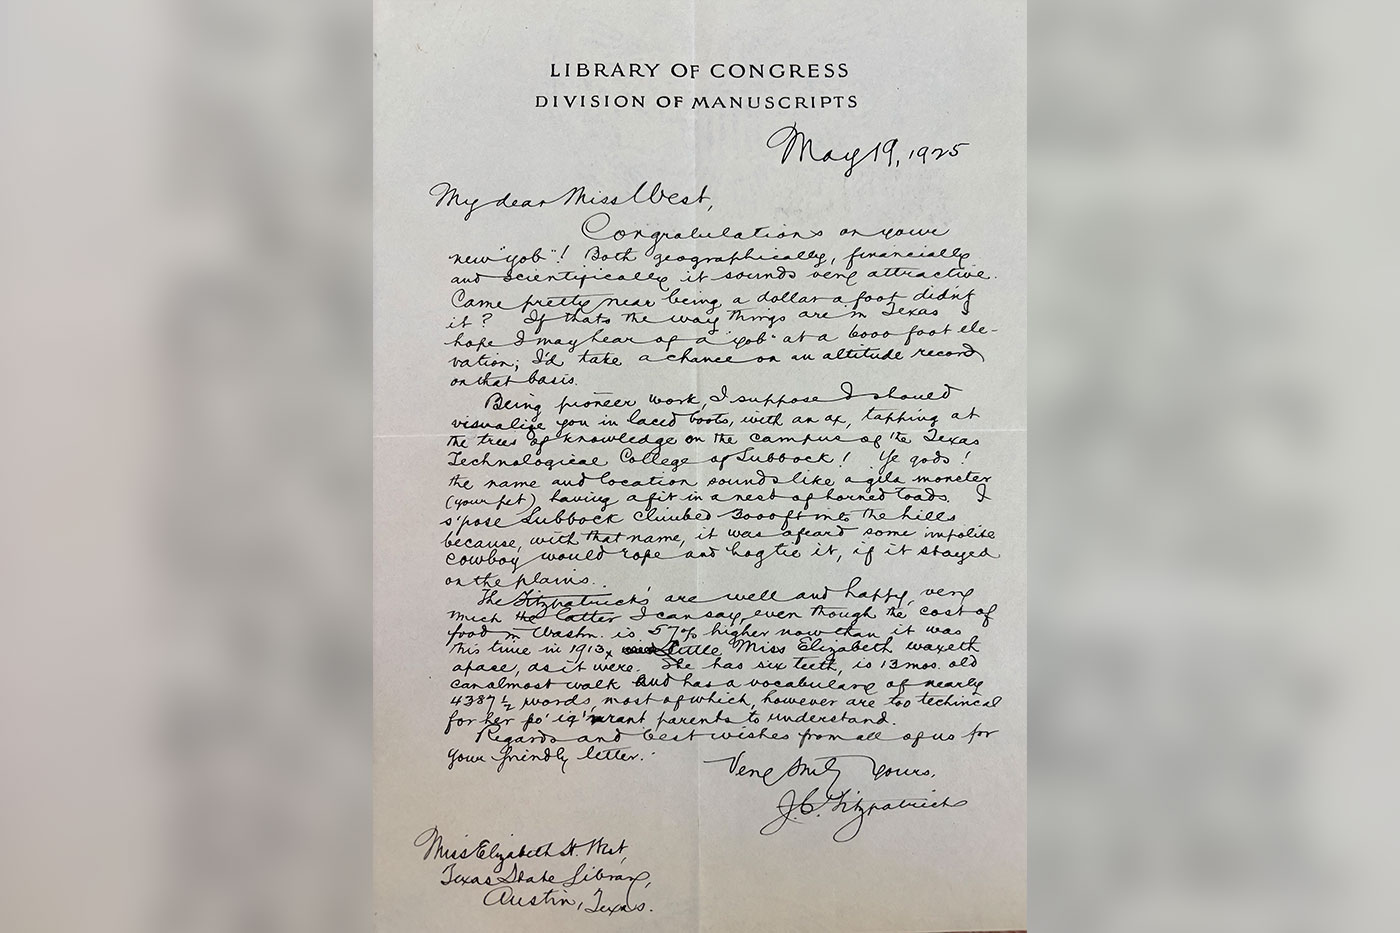 LIBRARY OF CONGRESS
DIVISION OF MANUSCRIPTS
May 19, 1925
My dear Miss West,
Congratulations on your
new "yob"! Both geographically, financially
and scientifically it sounds very attractive.
Came pretty near being a dollar a foot didn't
it? If thats the way things are in Texas I
hope I may hear of a "yob" at a 6000 foot ele-
vation; I'd take a chance on an altitude record
on that basis.
Being pioneer work, I suppose I should
visualize you in laced boots, with an ax, tapping at
the trees of knowledge on the campus of the Texas
Technological College of Lubbock! Ye gods!
the name and location sounds like a gila monster
(your pet) having a fit in a nest of horned toads. I
s'pose Lubbock climbed 3000 ft into the hills
because, with that name, it was afeard some impolite
cowboy would rope and hogtie it, if it stayed
on the plains.
The Fitzpatrick's are well and happy, very
much the latter I can say, even though the cost of
food in Washn. is 57% higher now than it was
this time in 1913, Little Miss Elizabeth waxeth
apace, as it were. She has six teeth, is 13 mos. old
can almost walk and has a vocabulary of nearly
4387 1/2 words, most of which, however are too techincal
for her po' ig'rant parents to understand.
Regards and best wishes from all of us for
your friendly letter.
Very truly yours,
J.C. Fitzpatrick
Miss Elizabeth H. West,
Texas State Library,
Austin, Texas.